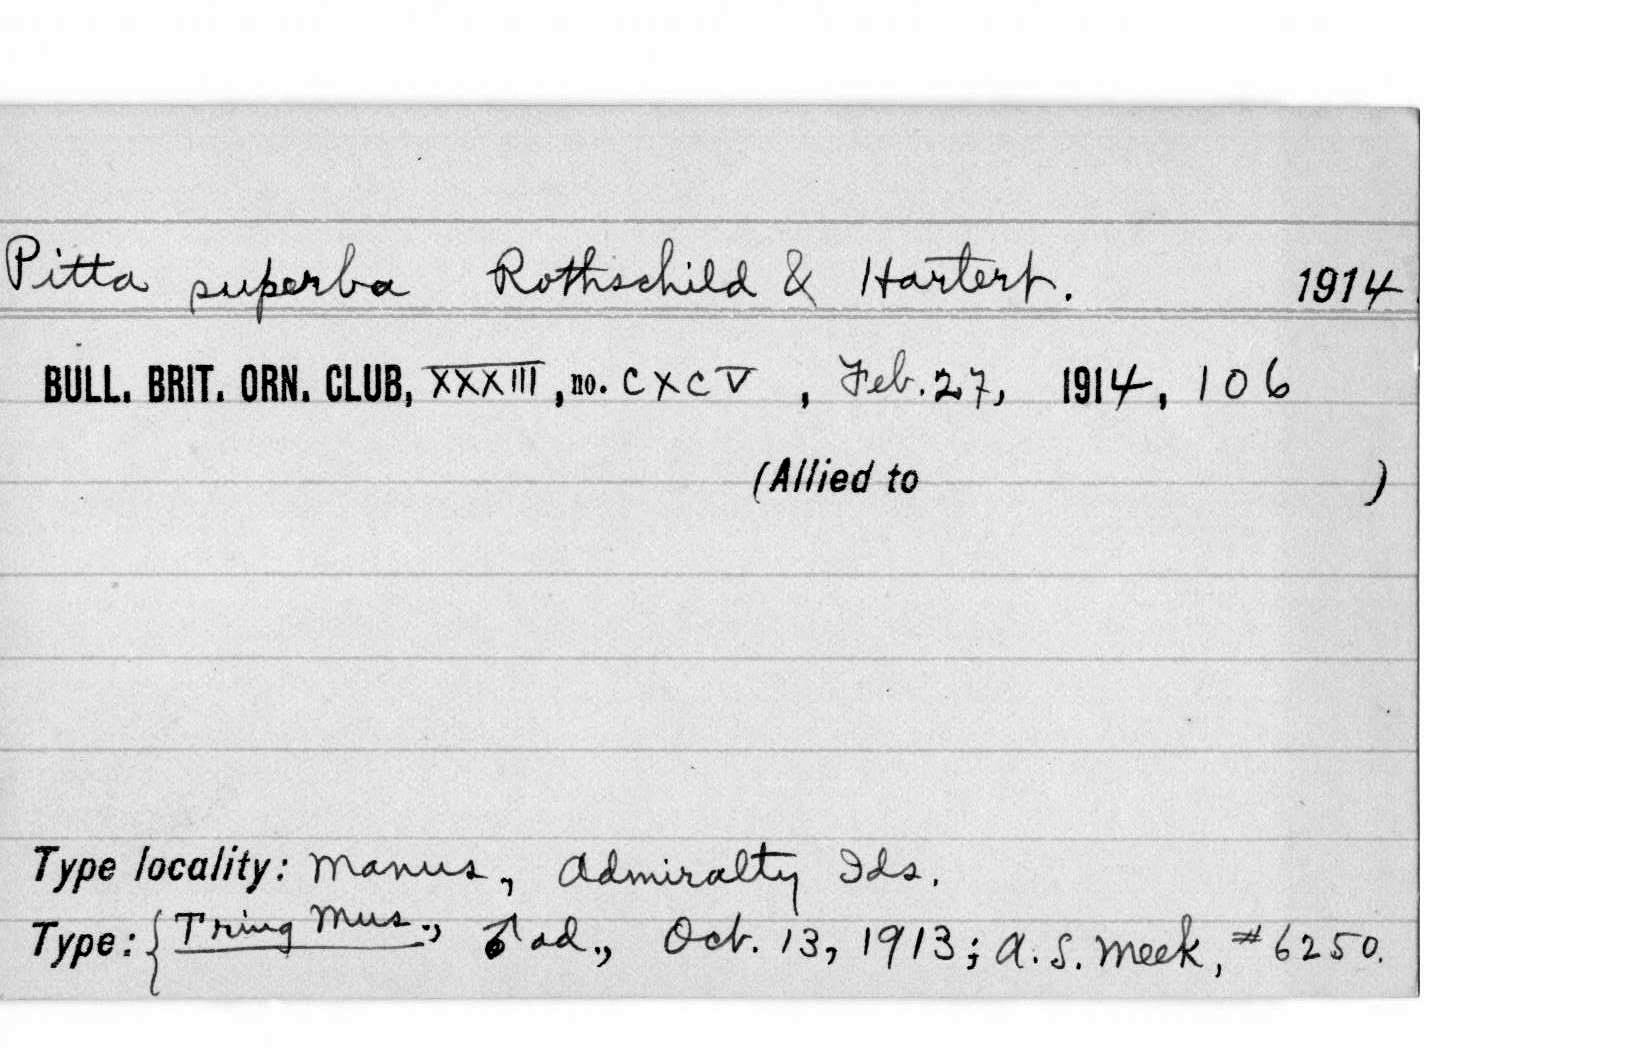 Pitta superba Rothschild & Hartert. 1914.
BULL. BRIT. ORN. CLUB, XXXIII, no. CXCV, Feb. 27, 1914, 106
(Allied to )
Type locality: Manus, Admiralty Ids.
Type: { Tring Mus., ♂ ad., Oct. 13, 1913; A. S. Meek, #6250.